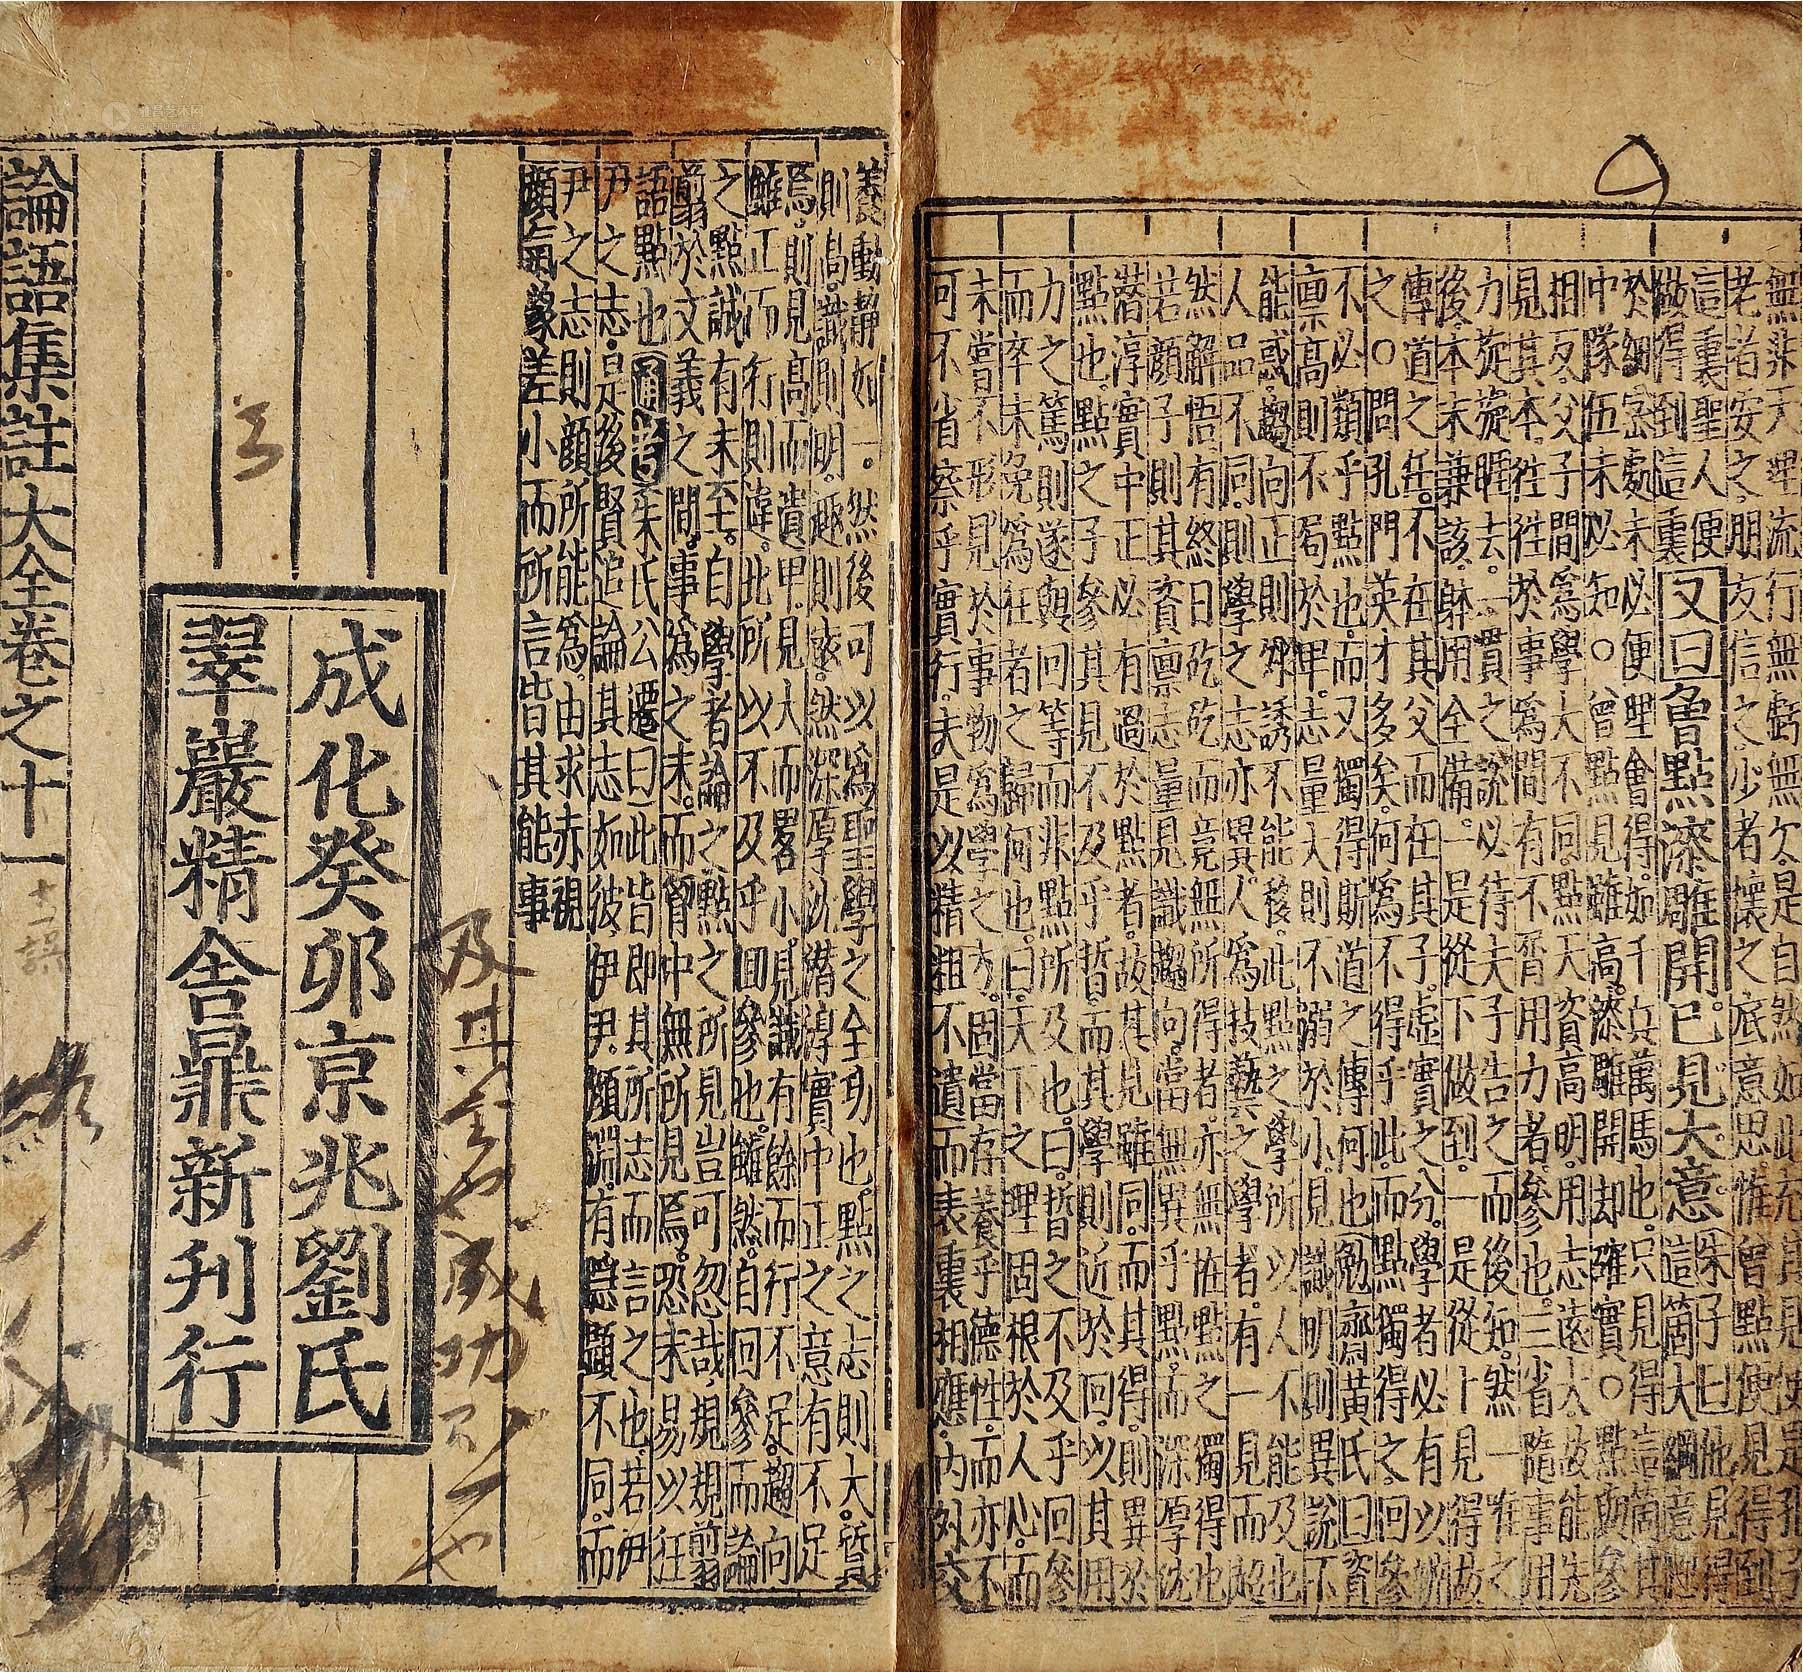 無非天理流行無虧無欠是自然如此充其見便是孔子
老者安之朋友信之少者懷之底意思惟曾點便見得到
這裏聖人便
做得到這裏
又曰魯點漆雕開已見大意
朱子曰他見得
這箇大綱意思
於細密處未必便理會得如千兵萬馬也只見得這箇其
中隊伍未必知○曾點見雖高漆雕開却確實○點與參
相反父子間為學大不同點天資高明用志遠大故能先
見其本往往於事為間有不屑用力者參也三省隨事用
力旋旋睚去一貫之說必待夫子告之而後知然一唯之
後本末兼該躰用全備一是從下做到一是從上見得故
傳道之任不在其父而在其子虛實之分學者必有以辨
之○問孔門英才多矣何為不得乎此而點獨得之回參
不必類乎點也而又獨得斯道之傳何也勉齋黃氏曰資
禀高則不局於卑志量大則不溺於小見識明則異說不
能惑趨向正則外誘不能移此點之學所以人不能及也
人品不同則學之志亦異人為技藝之學者有一見而超
然解悟有終日矻矻而竟無所得者亦無怪點之獨得也
若顏子則其資禀志量見識趨向當無異乎點而深厚沈
潛淳實中正必有過於點者故其見雖同而其得則異於
點也點之子參其見不及乎晳而其學則近於回以其用
力之篤則遂與回等而非點所及也曰晳之不及乎回參
而卒未免為狂者之歸何也曰天下之理固根於人心而
未嘗不形見於事物為學之方固當存養乎德性而亦不
可不省察乎實行夫是以精粗不遺而表裏相應內外交
養動靜如一然後可以為聖學之全功也點之志則大質
則高識則明趣則遠然深厚沈潛淳實中正之意有不足
焉則見高而遺卑見大而畧小見識有餘而行不足趨向
雖正而行則違此所以不及乎回參也雖然自回參而論
之點誠有未至自學者論之點之所見豈可忽哉規規翦
翦於文義之間事為之末而胷中無所見焉恐未易以狂
語點也通考朱氏公遷曰此皆即其所志而言之也若伊
尹之志是後賢追論其志如彼伊尹顏淵有隱顯不同而
尹之志則顏所能為由求赤視
顏氣象差小而所言皆其能事
成化癸卯京兆劉氏
翠巖精舍鼎新刊行
論語集註大全卷之十一